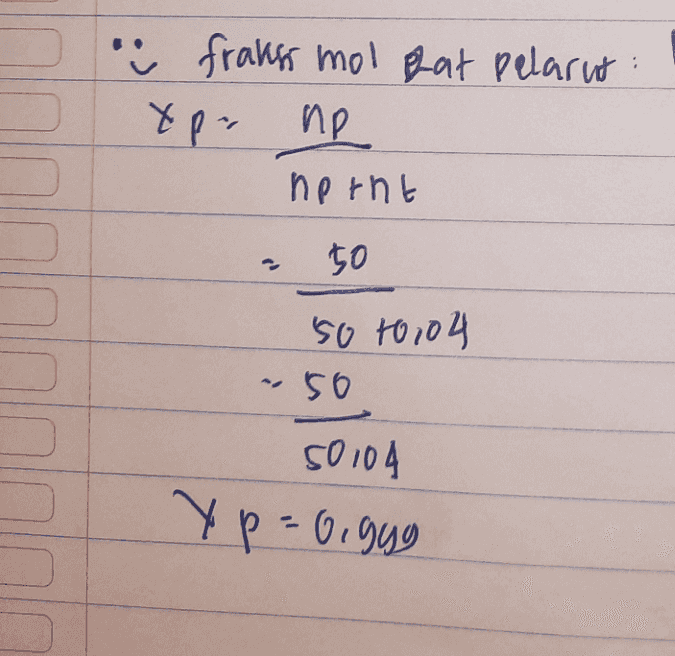 fraksi mol zat pelarut :
Xp = np
np + nt
= 50
50 + 0,04
= 50
50,04
Xp = 0,999